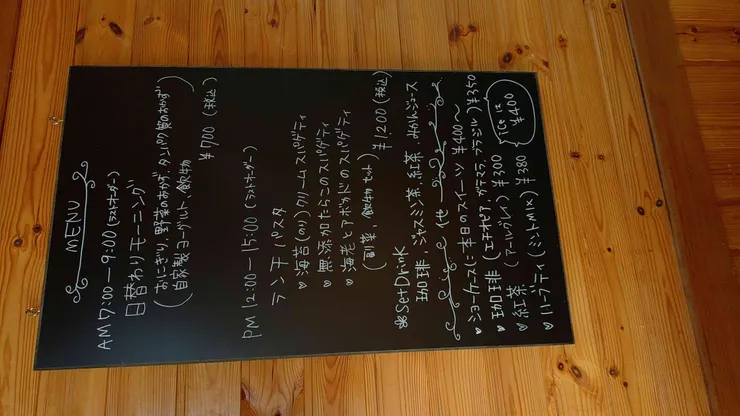 MENU
AM 7:00―9:00(ラストオーダー)
日替わりモーニング
(おにぎり、野菜のおかず、タンパク質のおかず
自家製ヨーグルト、飲み物)
¥700(税込)
PM 12:00―15:00(ラストオーダー)
ランチパスタ
♥海苔(のり)クリームスパゲティ
♥無添加たらこのスパゲティ
♥海老とアボカドのスパゲティ
(副菜、飲み物セット)
¥1200(税込)
Set Drink
珈琲、ジャスミン茶、紅茶、みかんジュース
他
♥ショーケースに本日のスイーツ ¥400〜
♥珈琲(エチオピア、グアテマラ、ブラジル)¥350
♥紅茶(アールグレイ)¥300
♥ハーブティ(ミントMIX)¥380
Iceは
¥400